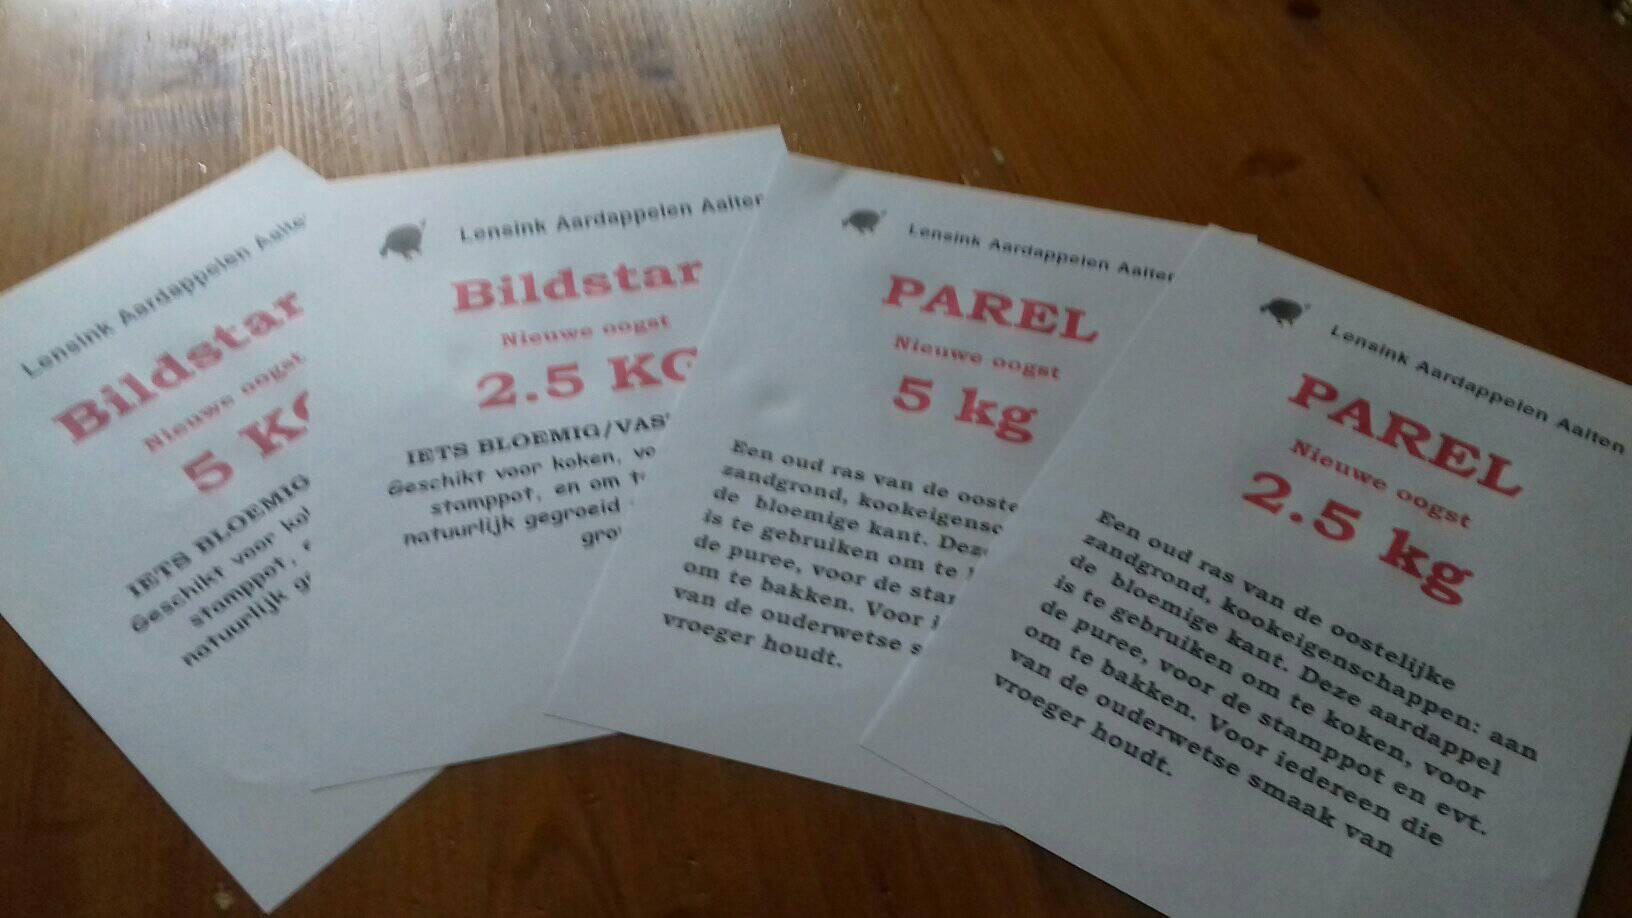 Lensink Aardappelen Aalte
Bildstar
Nieuwe oogst
5 KG
IETS BLOEMIG
Geschikt voor ko
stamppot,
natuurlijk g
Lensink Aardappelen Aalten
Bildstar
Nieuwe oogst
2.5 KG
IETS BLOEMIG/VAS
Geschikt voor koken, vo
stamppot, en om t
natuurlijk gegroeid
gro
Lensink Aardappelen Aalten
PAREL
Nieuwe oogst
5 kg
Een oud ras van de ooste
zandgrond, kookeigensc
de bloemige kant. Dez
is te gebruiken om te
de puree, voor de sta
om te bakken. Voor i
van de ouderwetse s
vroeger houdt.
Lensink Aardappelen Aalten
PAREL
Nieuwe oogst
2.5 kg
Een oud ras van de oostelijke
zandgrond, kookeigenschappen: aan
de bloemige kant. Deze aardappel
is te gebruiken om te koken, voor
de puree, voor de stamppot en evt.
om te bakken. Voor iedereen die
van de ouderwetse smaak van
vroeger houdt.